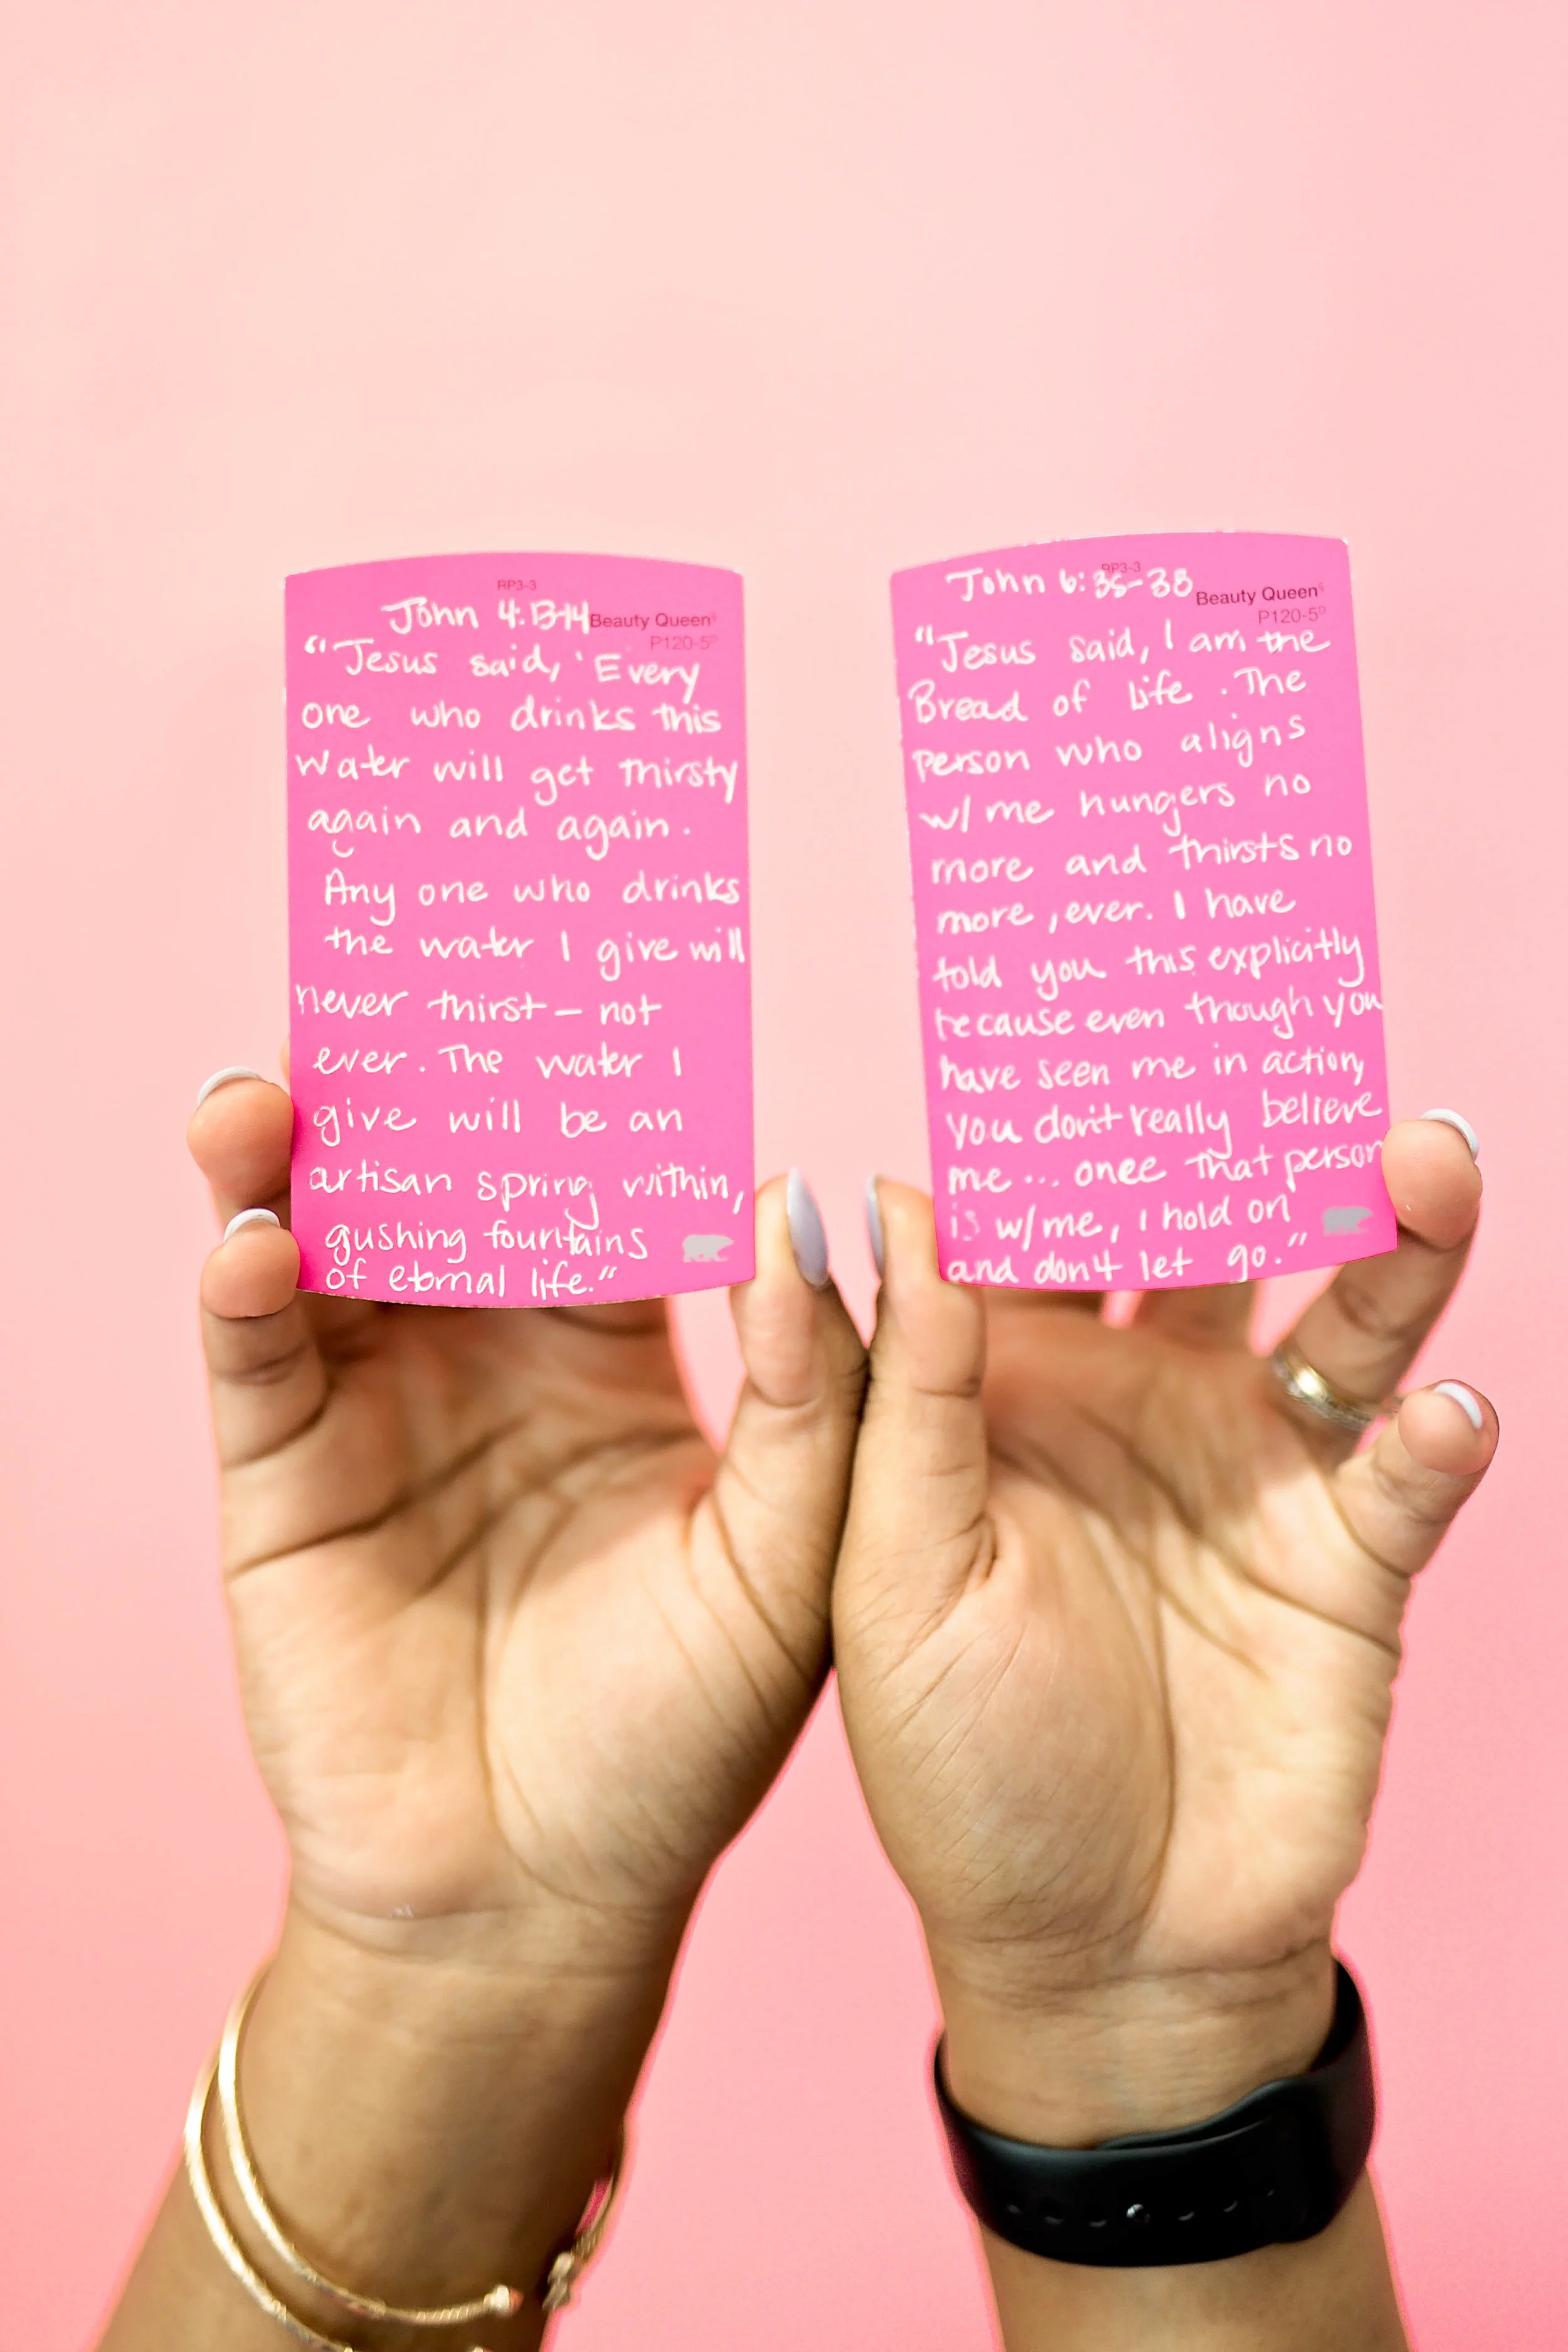 RP3-3
John 4:13-14
Beauty Queen
P120-5
"Jesus said, 'Every
one who drinks this
water will get thirsty
again and again.
Any one who drinks
the water I give will
never thirst — not
ever. The water I
give will be an
artisan spring within,
gushing fountains
of eternal life."
RP3-3
John 6:35-38
Beauty Queen
P120-5
"Jesus said, I am the
Bread of life. The
person who aligns
w/ me hungers no
more and thirsts no
more, ever. I have
told you this explicitly
because even though you
have seen me in action,
you don't really believe
me... once that person
is w/me, I hold on
and don't let go."